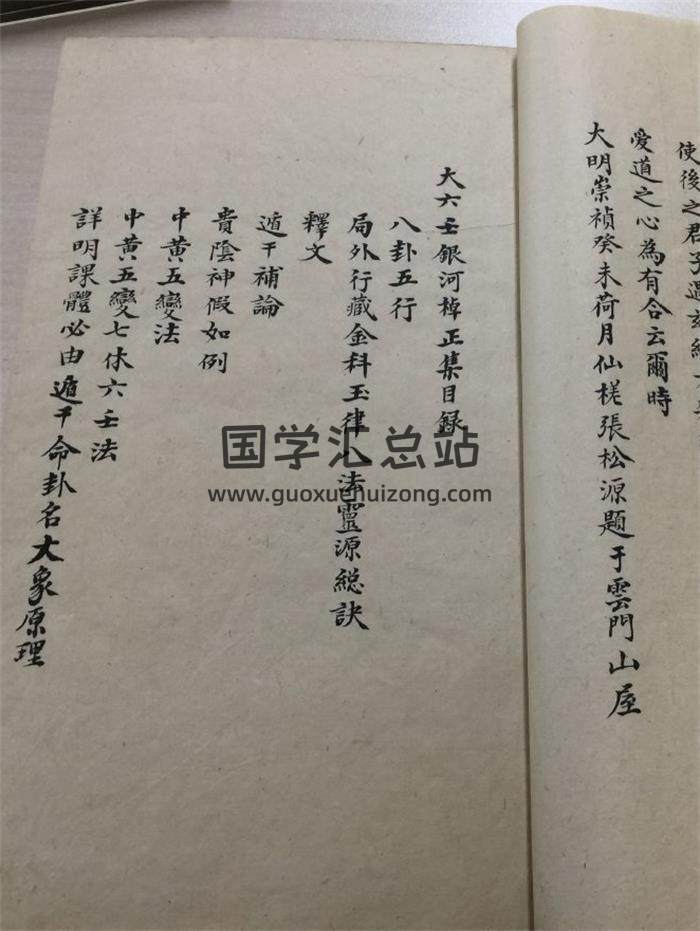 使後之君子遇玆
愛道之心為有合云爾時
大明崇禎癸未荷月仙槎張松源題于雲門山屋
大六壬銀河棹正集目録
八卦五行
局外行藏金科玉律八法靈源総訣
釋文
遁干補論
貴陰神假如例
中黄五變法
中黄五變七休六壬法
詳明課體必由遁干命卦名大象原理
国学汇总站
www.guoxuehuizong.com